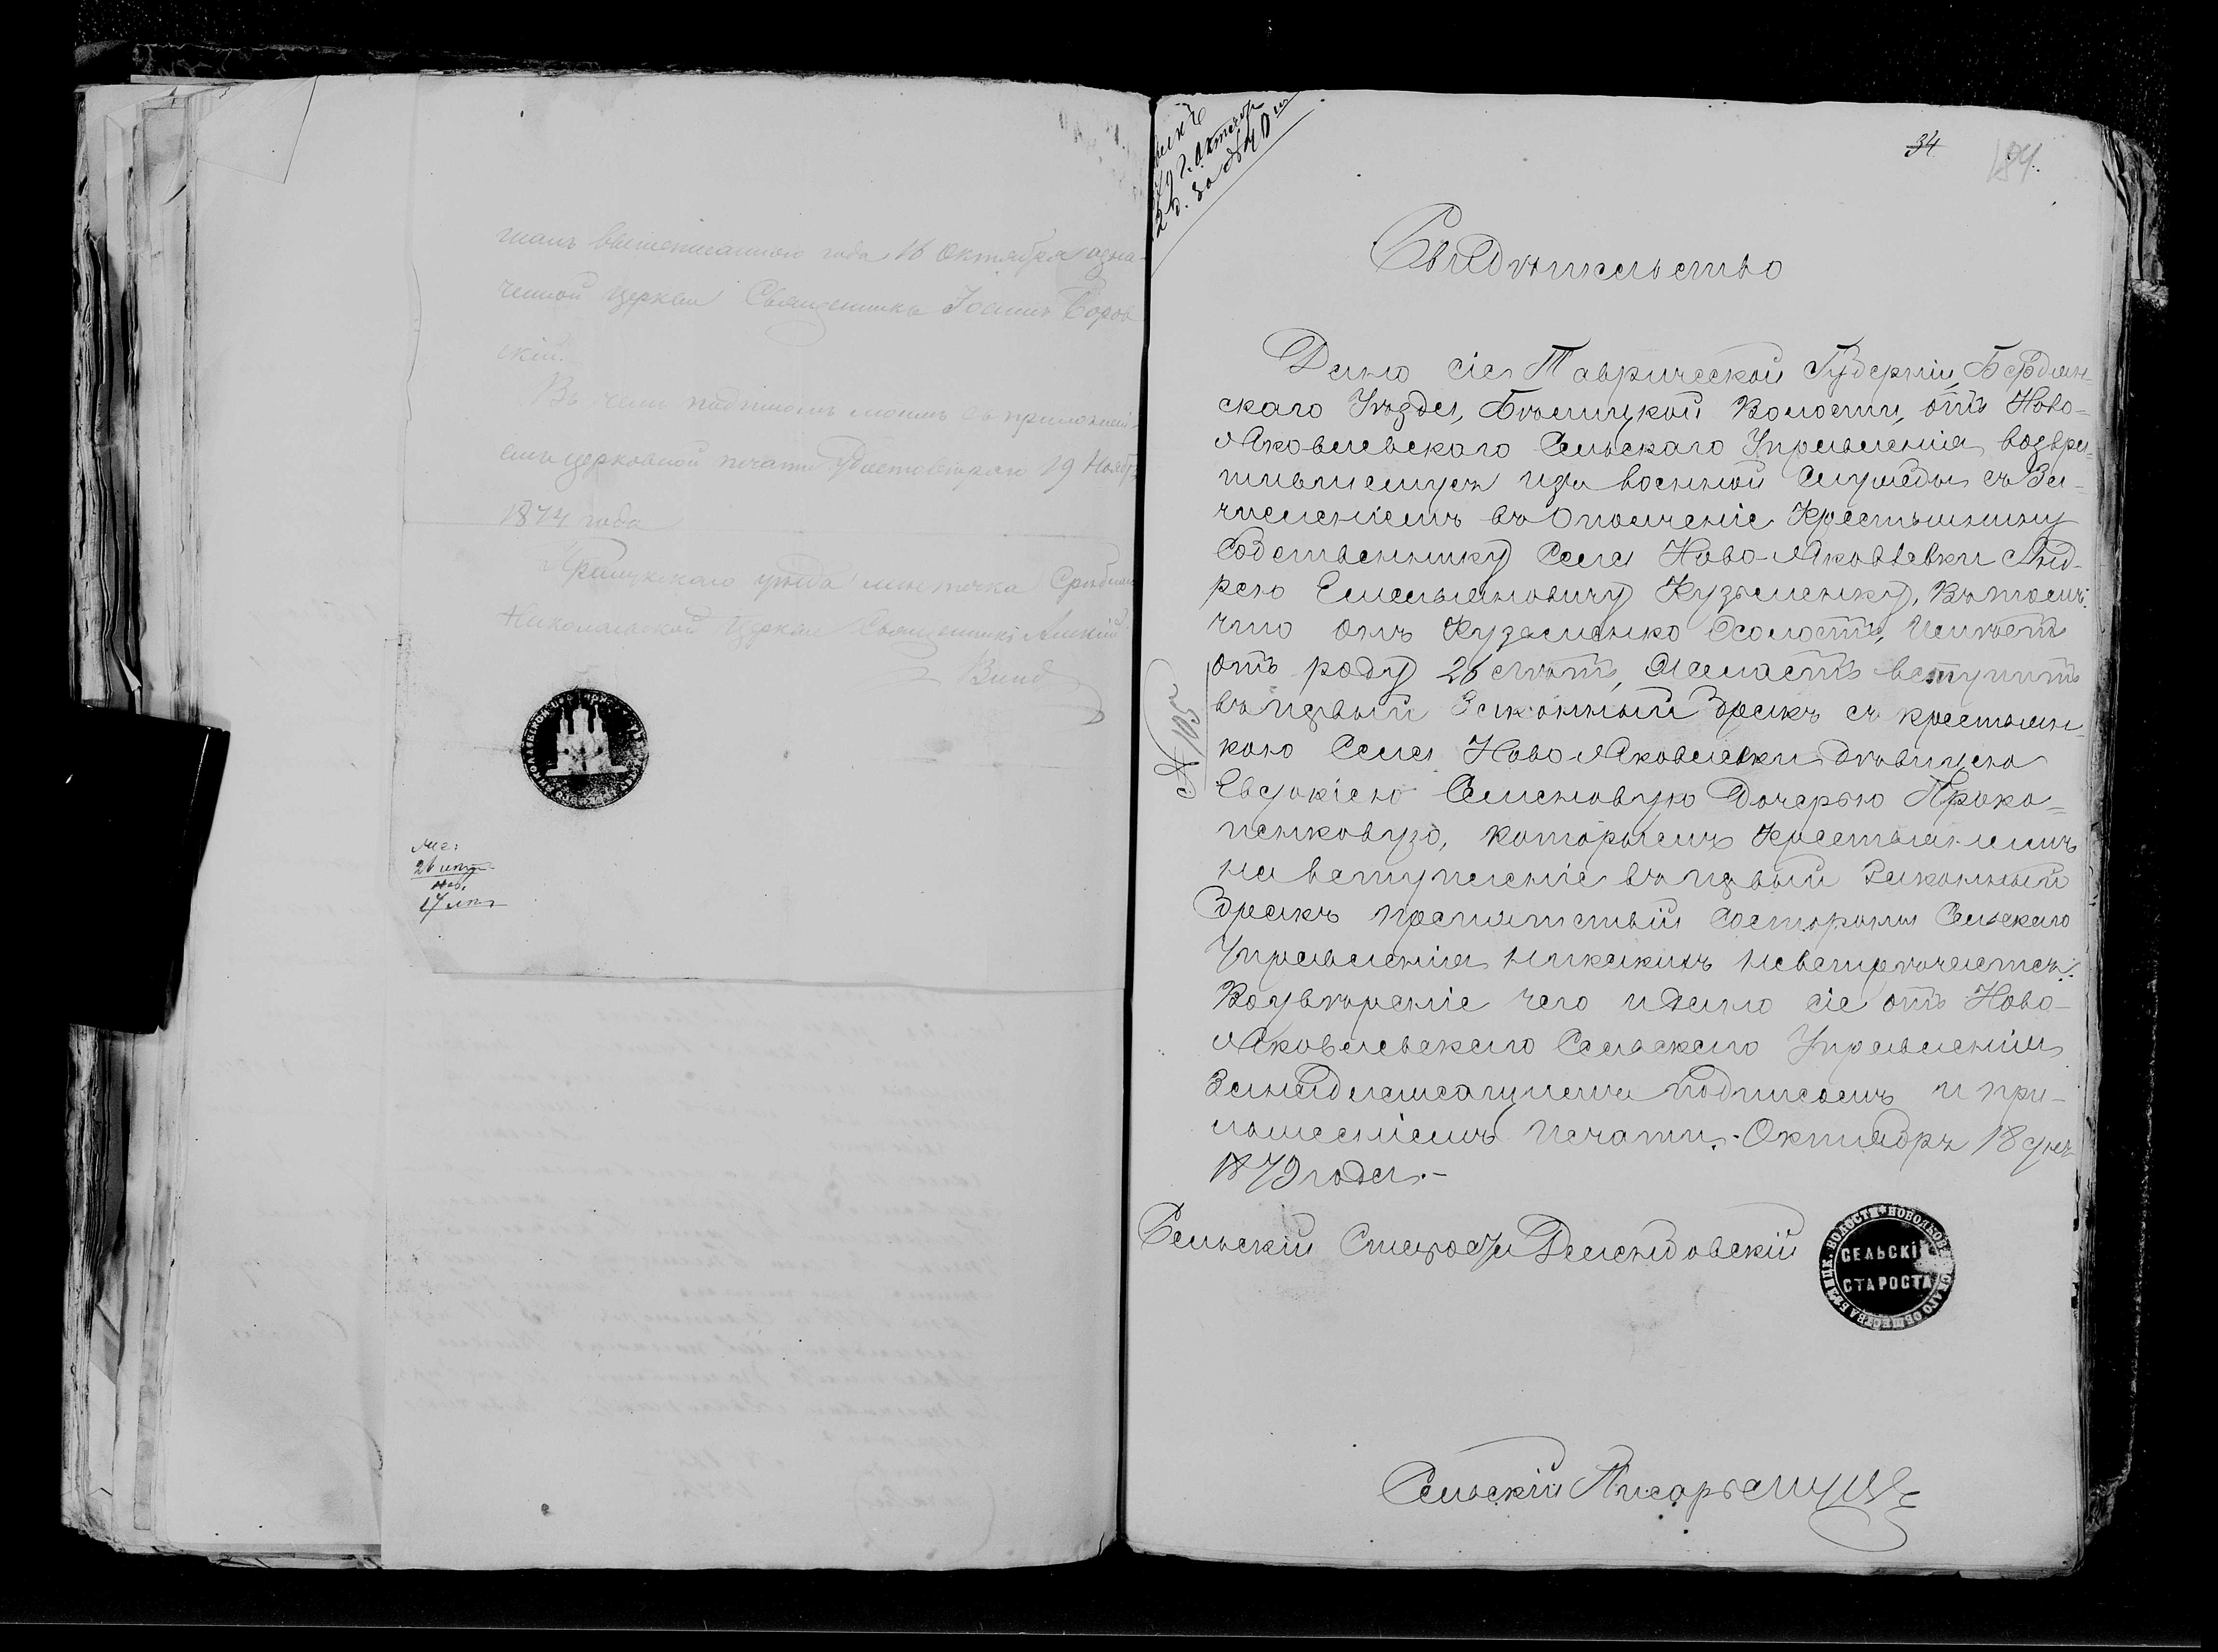 шалъ вышеписанного года 16 Октября озна-
ченной Церкви Священникъ Іоаннъ Боров
скій.
Въ чемъ подписомъ моимъ съ приложені-
емъ церковной печати удостовѣряю 19 Ноябр
1874 года
Прилукскаго уѣзда мѣстечка Срѣбнаго
Николаевской Церкви Священникъ Алексій
26 лѣтъ
Нев.
17 лѣтъ
Октября
34
184
Свидѣтельство
Дано сіе Таврической Губерніи, Бердян-
скаго Уѣзда, Бѣлицкой Волости, отъ Ново-
Яковлевскаго Сельскаго Управленія, возвра-
тившемуся изъ военной Службы съ За-
численіемъ въ Ополченіе Крестьянину
Собственнику Села Ново-Яковлевки Анд-
рею Емельяновичу Кузьменку, Въ томъ
что онъ Кузьменко Холостъ, Имѣетъ
отъ роду 26 лѣтъ, Желаетъ вступить
въ первый Законный бракъ съ крестьян-
кою Села Ново Яковлевки дѣвицею
Евдокіею Семеновую Дочерью Проко-
пенковую, которымъ Крестьянамъ
на вступленіе въ первый Законный
бракъ препятствій состороны Сельскаго
Управленія никакихъ невстрѣчается.
Воувѣреніе чего и дано сіе отъ Ново-
Яковлевскаго Сельскаго Управленія
Занадлежащимъ подписомъ и при-
ложеніемъ печати. Октября 18 дня
1879 года.-
№ 105
Сельскій Староста
СЕЛЬСКІЙ
СТАРОСТА
Сельскій Писарь